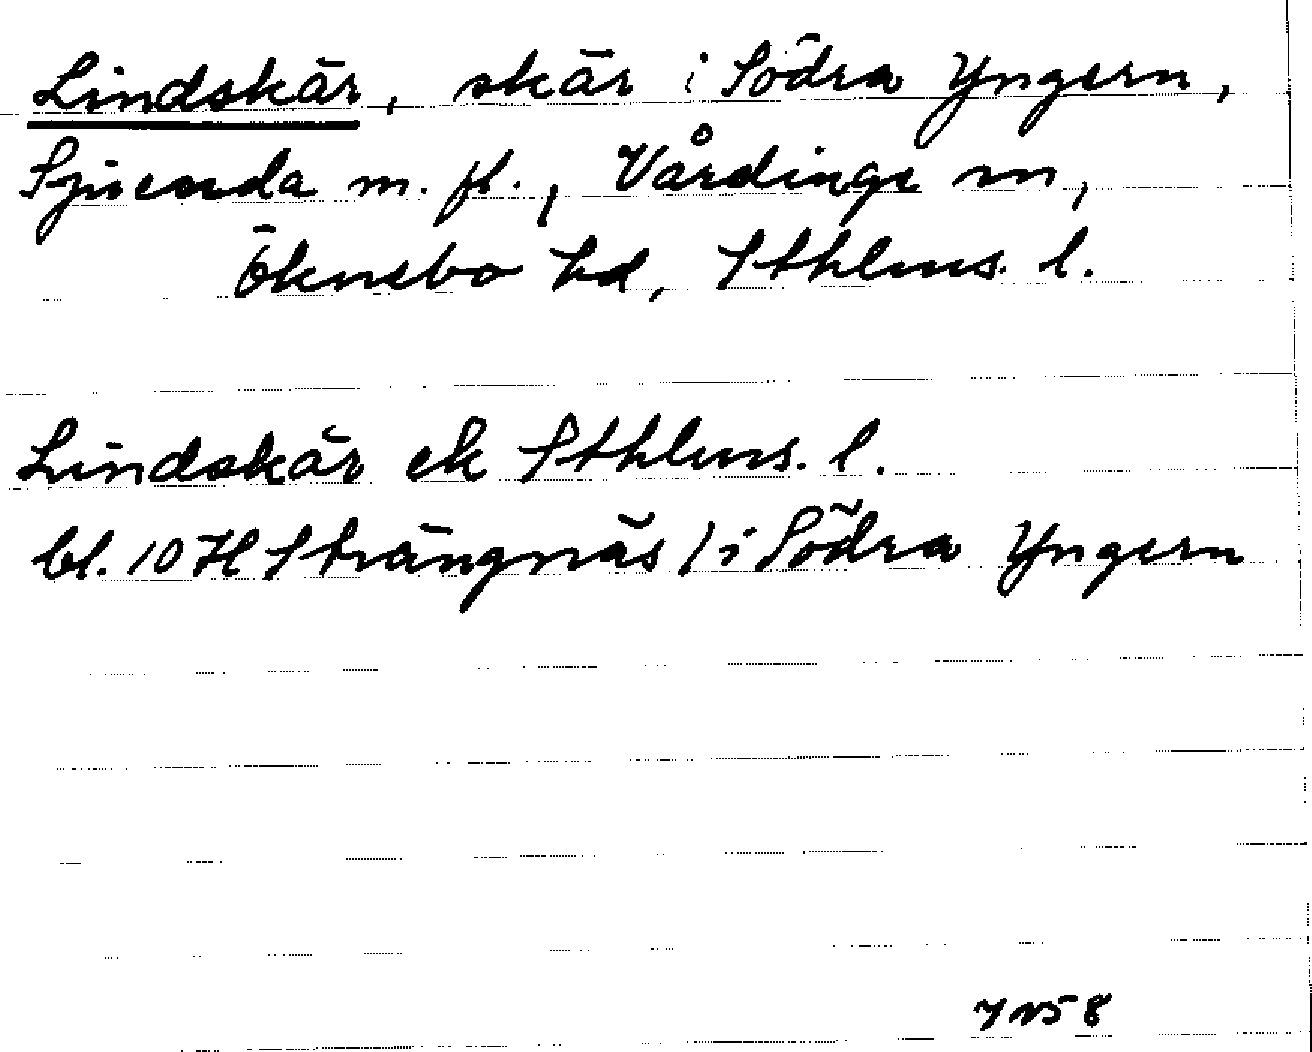 Lindskär, skär i Södra Yngern,
Sjuenda m. fl., Vårdinge sn,
Öknebo hd, Sthlms. l.
Lindskär ek Sthlms. l.
bl. 10 H Strängnäs / i Södra Yngern